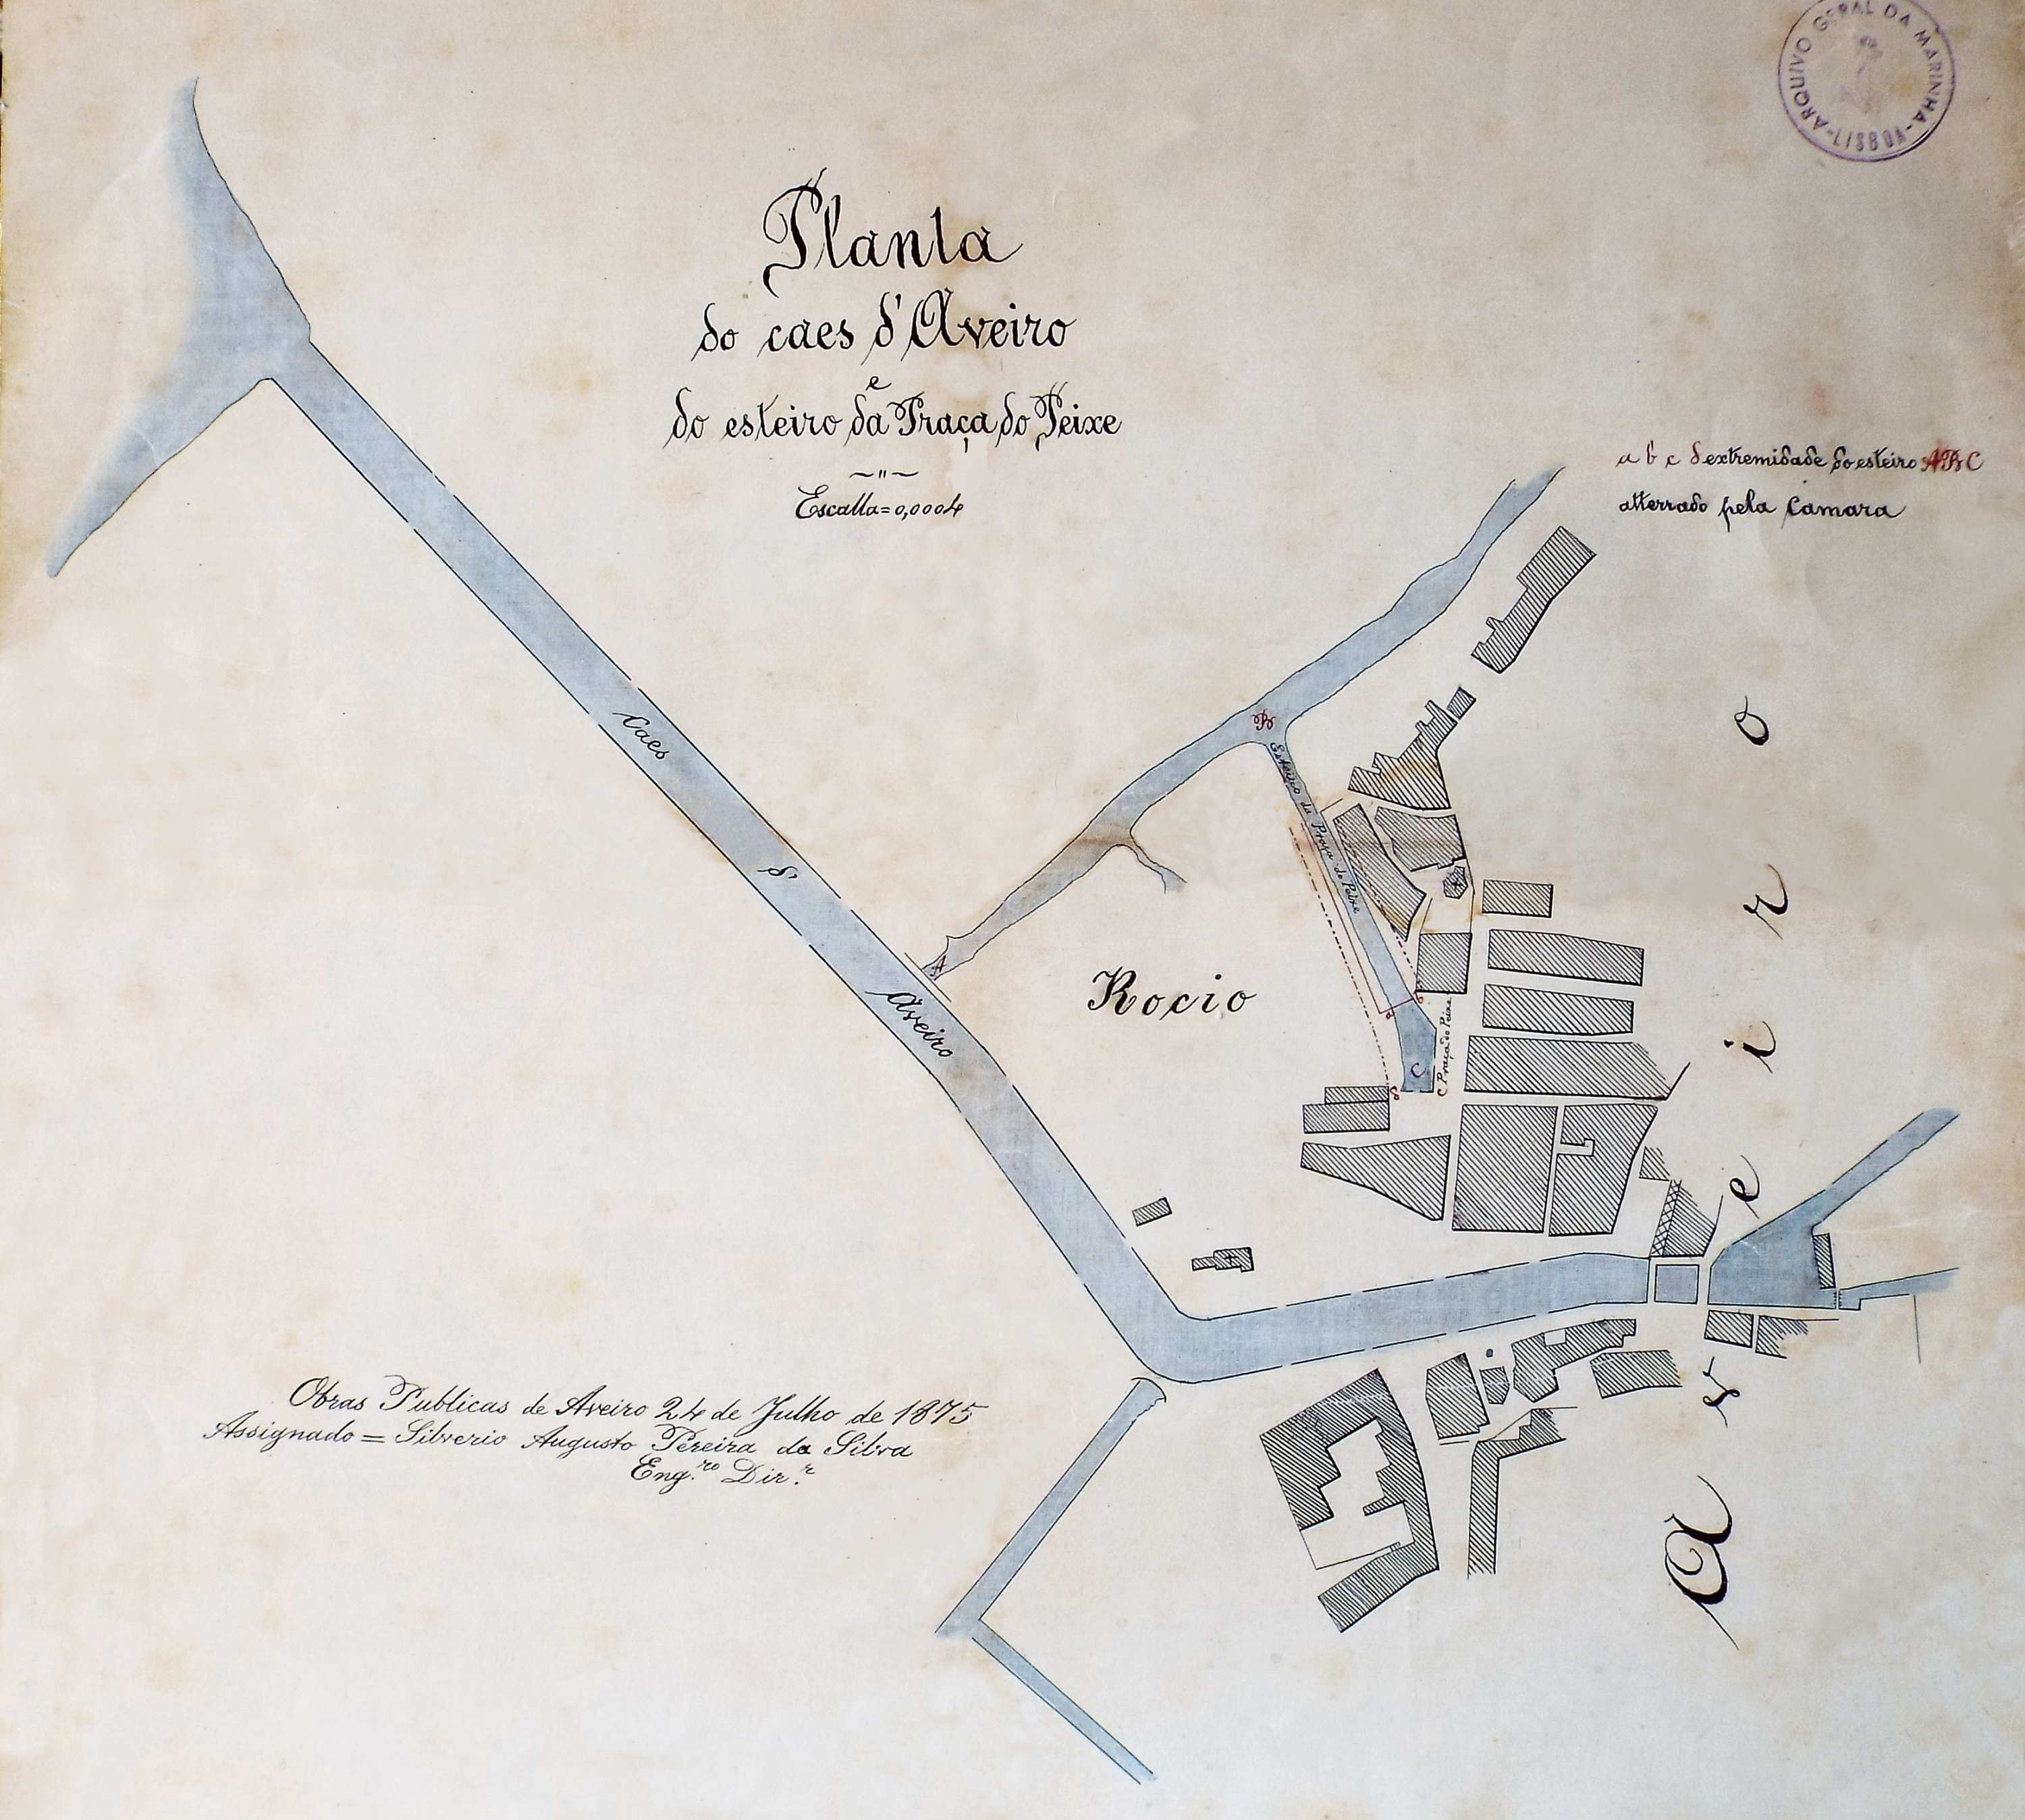 ARQUIVO GERAL DA MARINHA - LISBOA -
Planta
do caes d'Aveiro
e
do esteiro da Praça do Peixe
Escalla = 0,0004
a b c d extremidade do esteiro ABC
atterrado pela Camara
Caes
d'
Aveiro
A
B
Esteiro da Praça do Peixe
Rocio
a
b
C
d
c
Praça do Peixe
Aveiro
Obras Publicas de Aveiro 24 de Julho de 1875
Assignado = Silverio Augusto Pereira da Silva
Eng.ro Dir.r